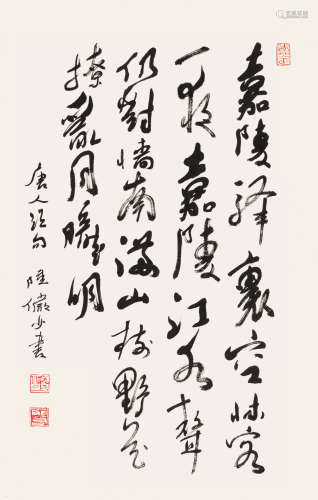 嘉陵驛裏空牀客
一夜嘉陵江水聲
仍對墻南滿山樹野花
撩亂月朧明
唐人絕句 陸儼少書